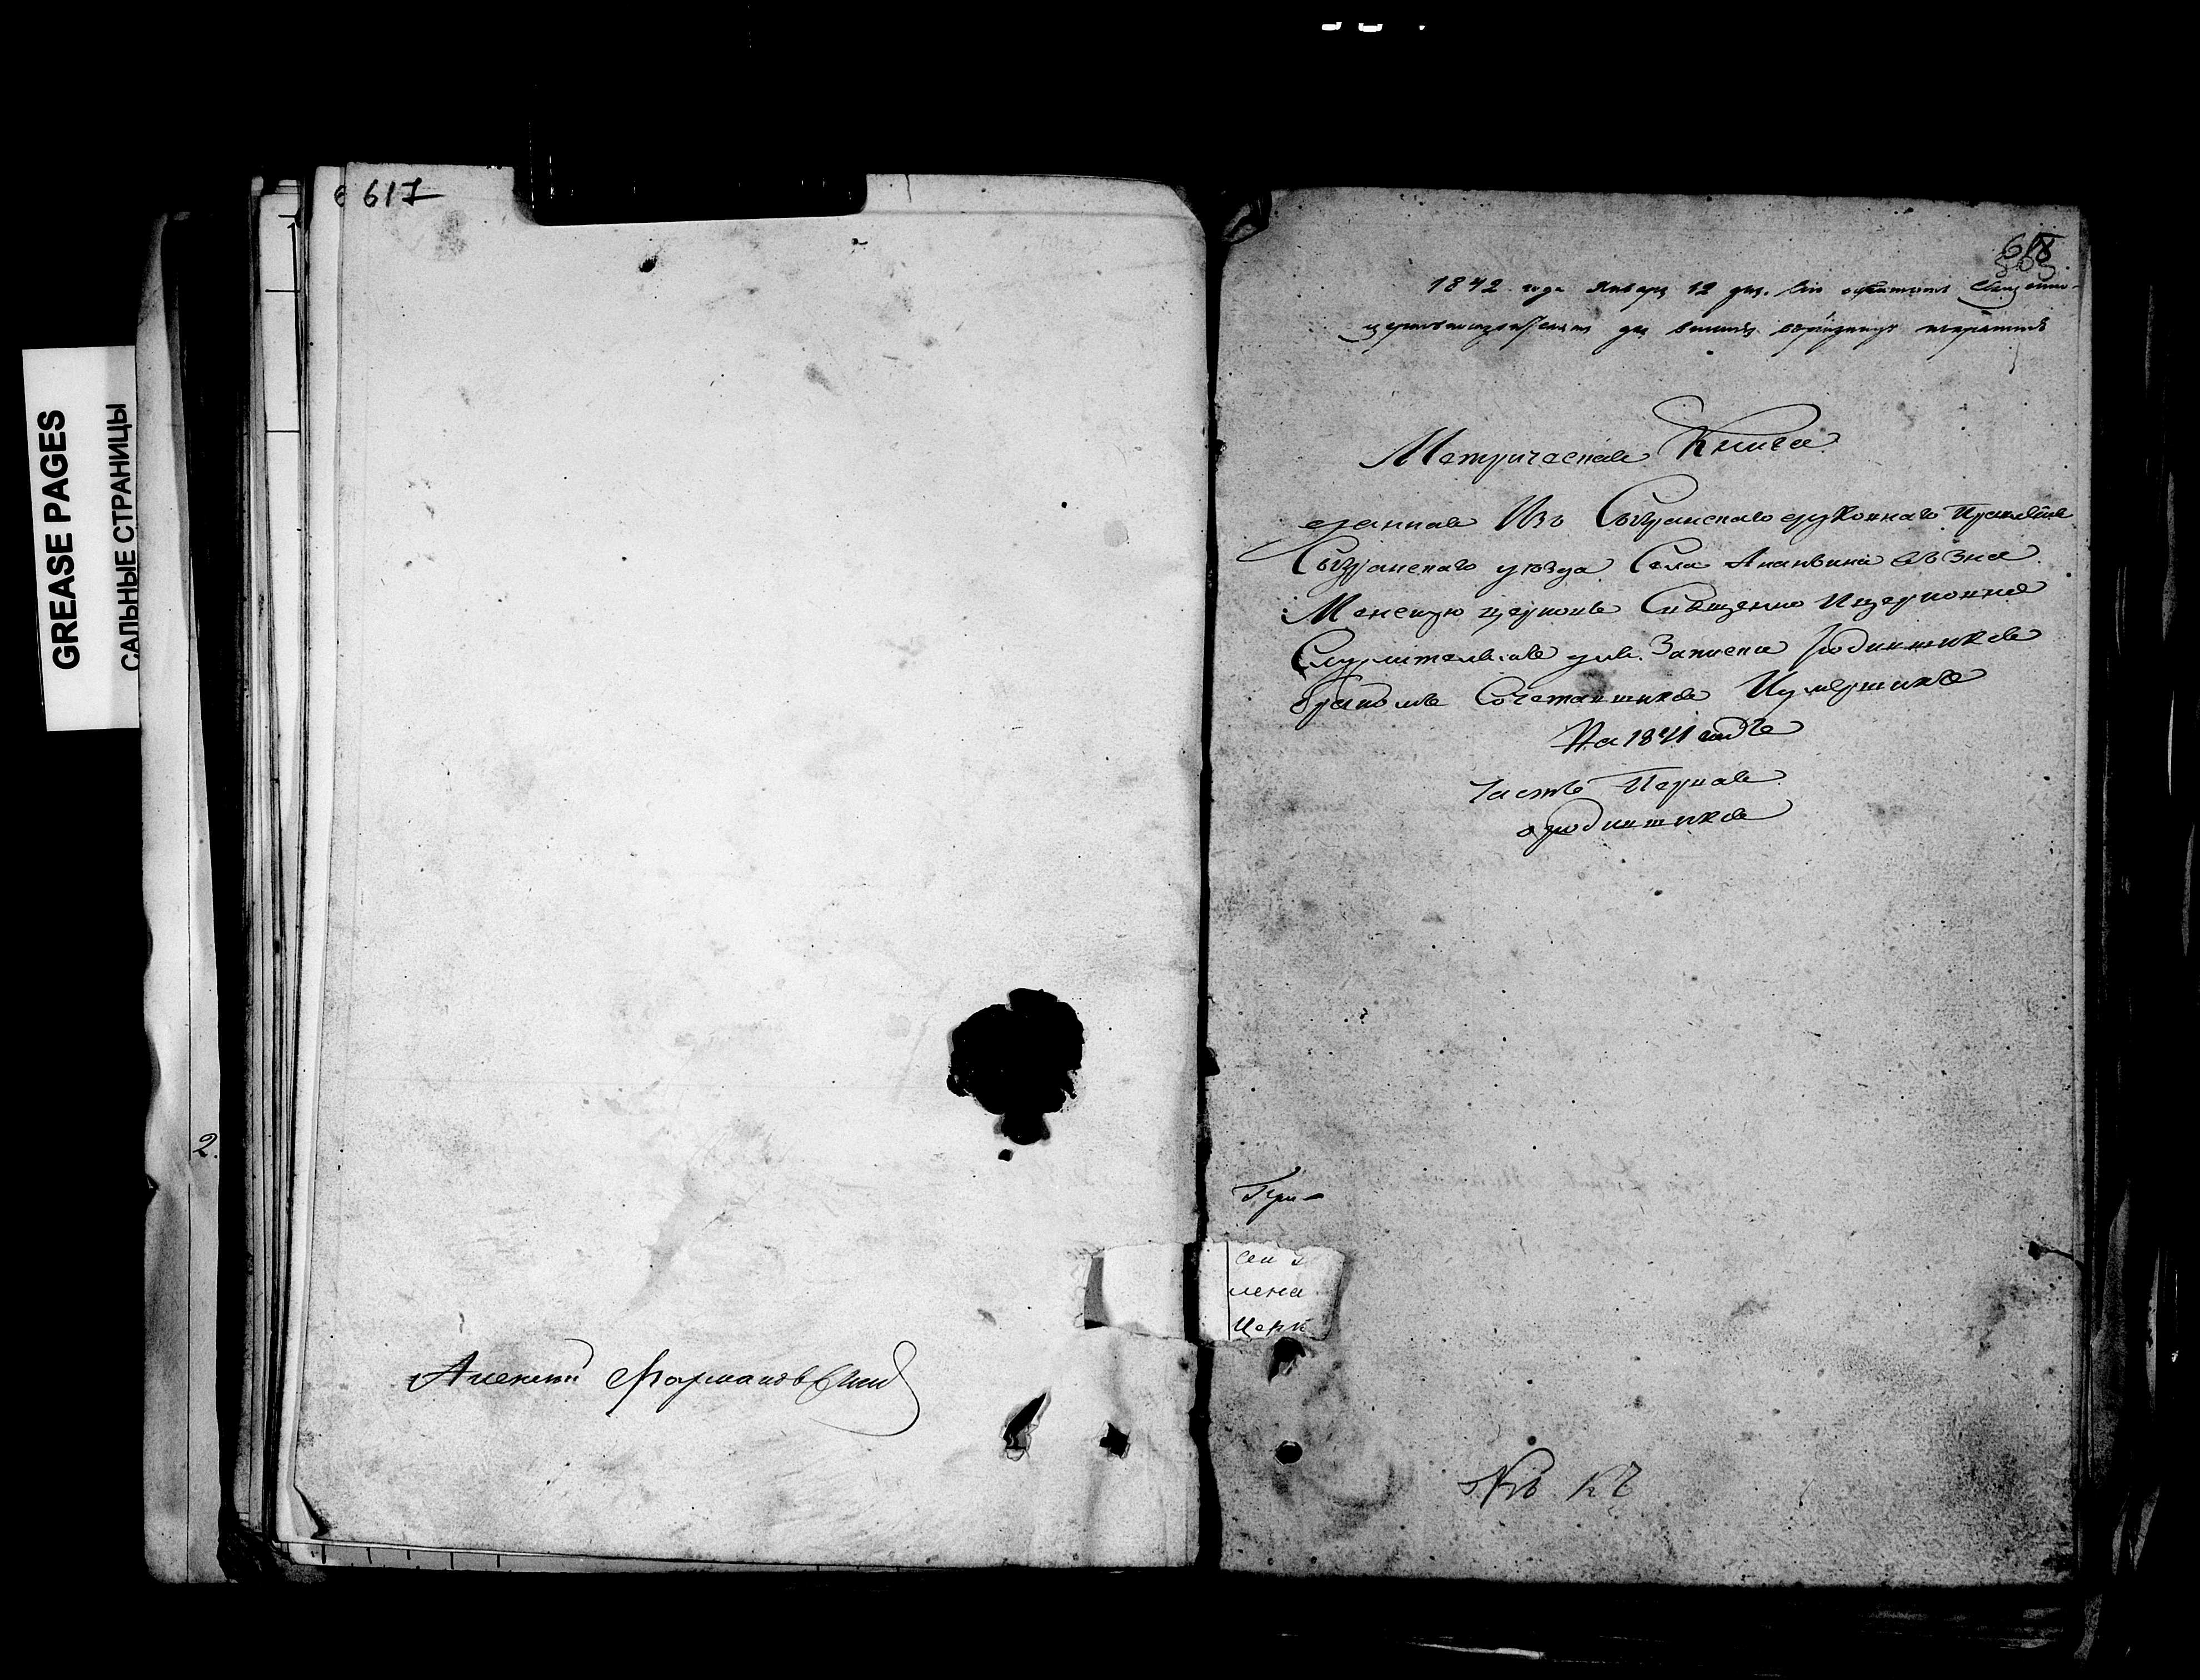 GREASE PAGES
САЛЬНЫЕ СТРАНИЦЫ
617
2.
Алексѣй Фармаковскій
618
1842 года Января 12 дня. Священно-
церковнослужители
Метрическая Книга
данная Изъ Сызранскаго духовнаго Правленія
Сызранскаго уѣзда Села Ананьина
церковь Священно Ицерковно
Служителямъ для Записки родившихся
бракомъ Сочетавшихся Иумершихъ
На 1841 годъ
Часть Первая
ородившихся
При-
сей
лена
Церк